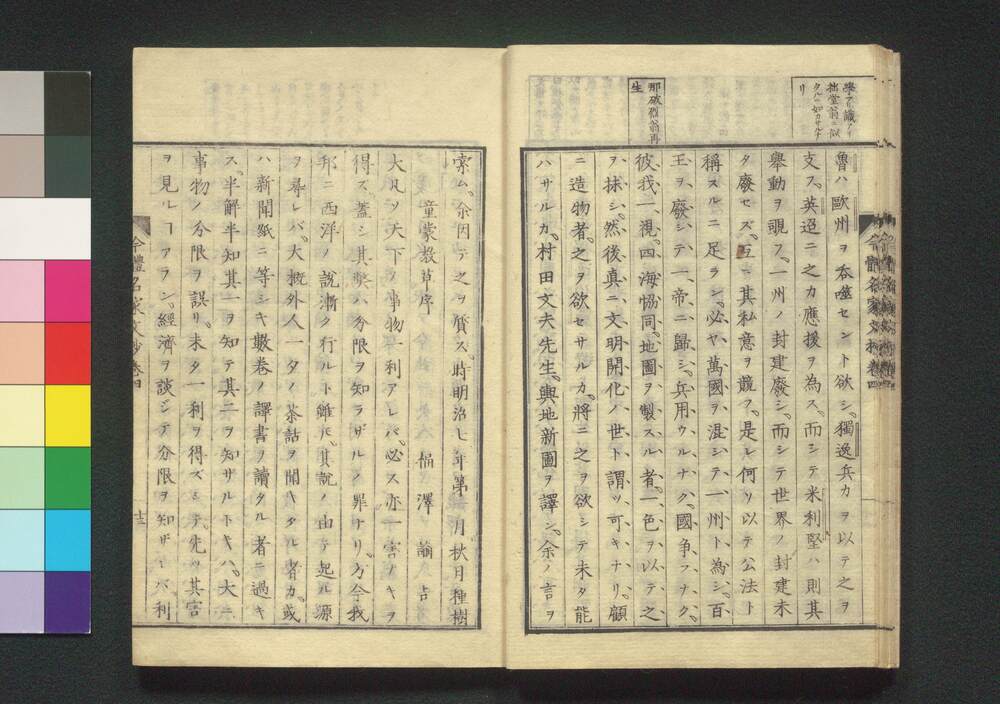 學アリ識アリ
拙堂翁ニ似
タル如カサルナ
リ
那破烈翁再
生
魯ハ歐州ヲ呑噬セント欲シ。獨逸兵カヲ以テ之ヲ
支フ。英迢ニ之カ應援ヲ為ス。而シテ米利堅ハ則其
擧動ヲ覗フ。一州ノ封建廢シ。而シテ世界ノ封建未
タ廢セズ。互ニ其私意ヲ競フ。是レ何ソ以テ公法ト
稱スルニ足ラン。必ヤ、萬國ヲ、混シテ、一州ト、為シ、百
王ヲ、廢シテ、一帝ニ歸シ。兵用ウルナク。國争フナク。
彼我一視。四海恊同。地圖ヲ製スル者。一色ヲ以テ之
ヲ抹シ。然後真ニ文明開化ノ世ト謂ッ可キナリ。顧
ニ造物者之ヲ欲セサルカ。將ニ之ヲ欲シテ未タ能
ハサルカ。村田文夫先生。輿地新圖ヲ譯シ。余ノ言ヲ
今體名家文抄 卷四
索ム。余因テ之ヲ質ス。時明治七年第 月秋月種樹
童蒙教草序 福澤諭吉
大凡ソ天下ノ事物一利アレバ。必ス亦一害ナキヲ
得ズ。蓋シ其弊ハ分限ヲ知ラザルノ罪ナリ。方今我
邦ニ西洋ノ說漸ク行ルト雖ドモ。其說ノ由テ起ル源
ヲ尋レバ。大概外人一夕ノ茶話ヲ聞キタル者カ。或
ハ新聞紙ニ等シキ數卷ノ譯書ヲ讀タル者ニ過キ
ス。半解半知其一ヲ知テ其二ヲ知サルトキハ。大ニ
事物ノ分限ヲ誤リ。未タ一利ヲ得ズシテ。先ツ其害
ヲ見ルヿアラン。經濟ヲ談シテ分限ヲ知ザレバ。利
今體名家文抄 卷四 十三